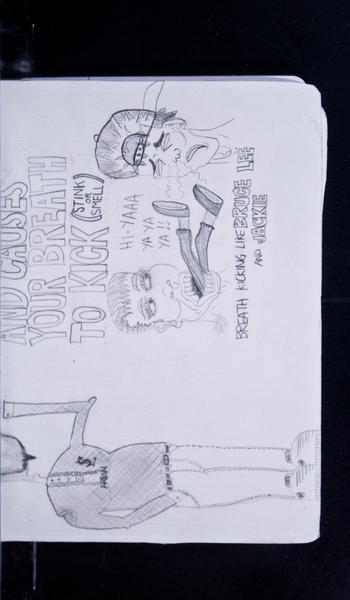 AND CAUSES
YOUR BREATH
TO KICK (STINK
OR
SMELL)
HI-YAAA
YA YA
YA!!
BREATH KICKING LIKE BRUCE LEE
AND JACKIE